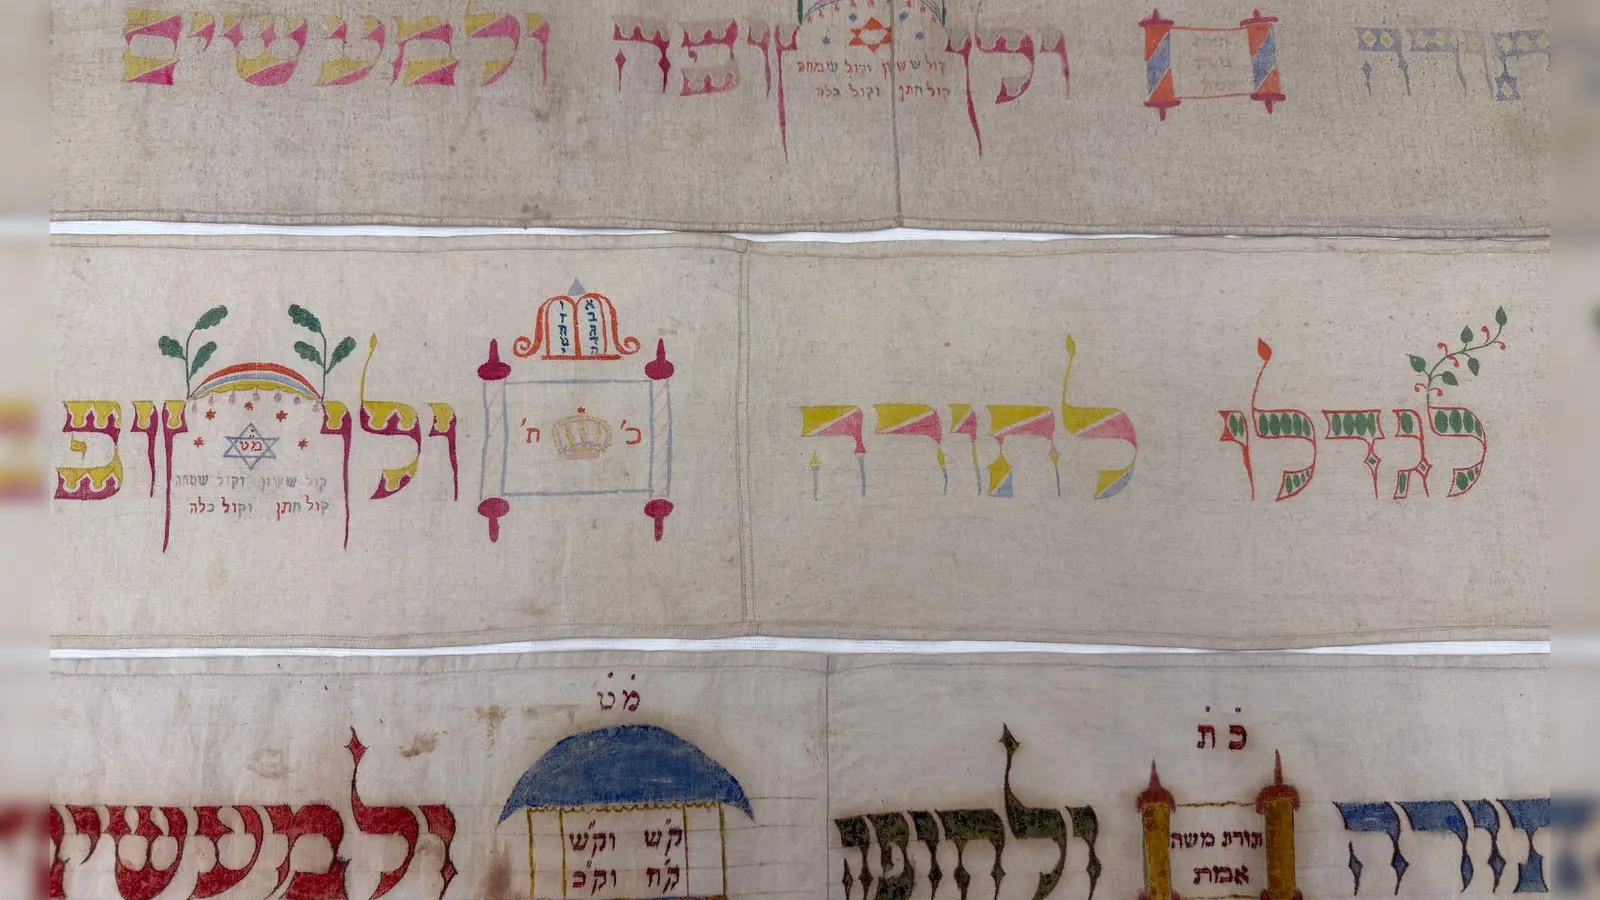 תורה
תורת
משה
אמת
ולחופה
קול ששון וקול שמחה
קול חתן וקול כלה
ולמעשים
לגדלו
לתורה
א ו
ב ז
ג ח
ד ט
ה י
כ' ת'
ולחופ
מ"ט
קול ששון וקול שמחה
קול חתן וקול כלה
תורה
כ ת
תורת משה
אמת
ולחופה
מ ט
ק"ש וק"ש
ק"ח וק"כ
ולמעשי